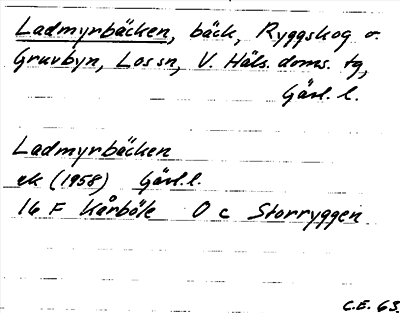 Ladmyrbäcken, bäck, Ryggskog o.
Gruvbyn, Los sn, V. Häls. doms. tg,
Gävl. l.
Ladmyrbäcken
ek (1958) Gävl. l.
16 F Kårböle O c Storryggen
C.E. 63.